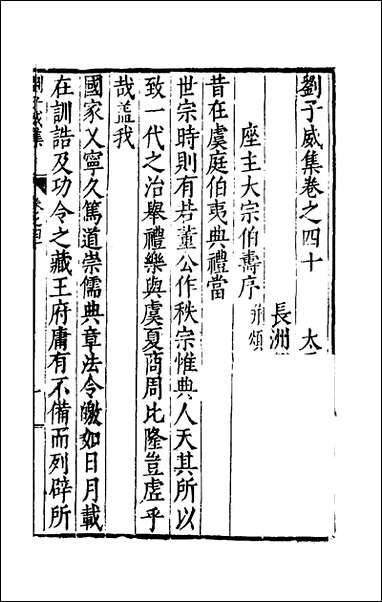 劉子威集卷之四十 太
長洲
座主大宗伯壽序 荊頌
昔在虞庭伯夷典禮當
世宗時則有若董公作秩宗惟典人天其所以
致一代之治舉禮樂與虞夏商周比隆豈虛乎
哉蓋我
國家乂寧久篤道崇儒典章法令皦如日月載
在訓誥及功令之藏王府庸有不備而列辟所
劉子威集